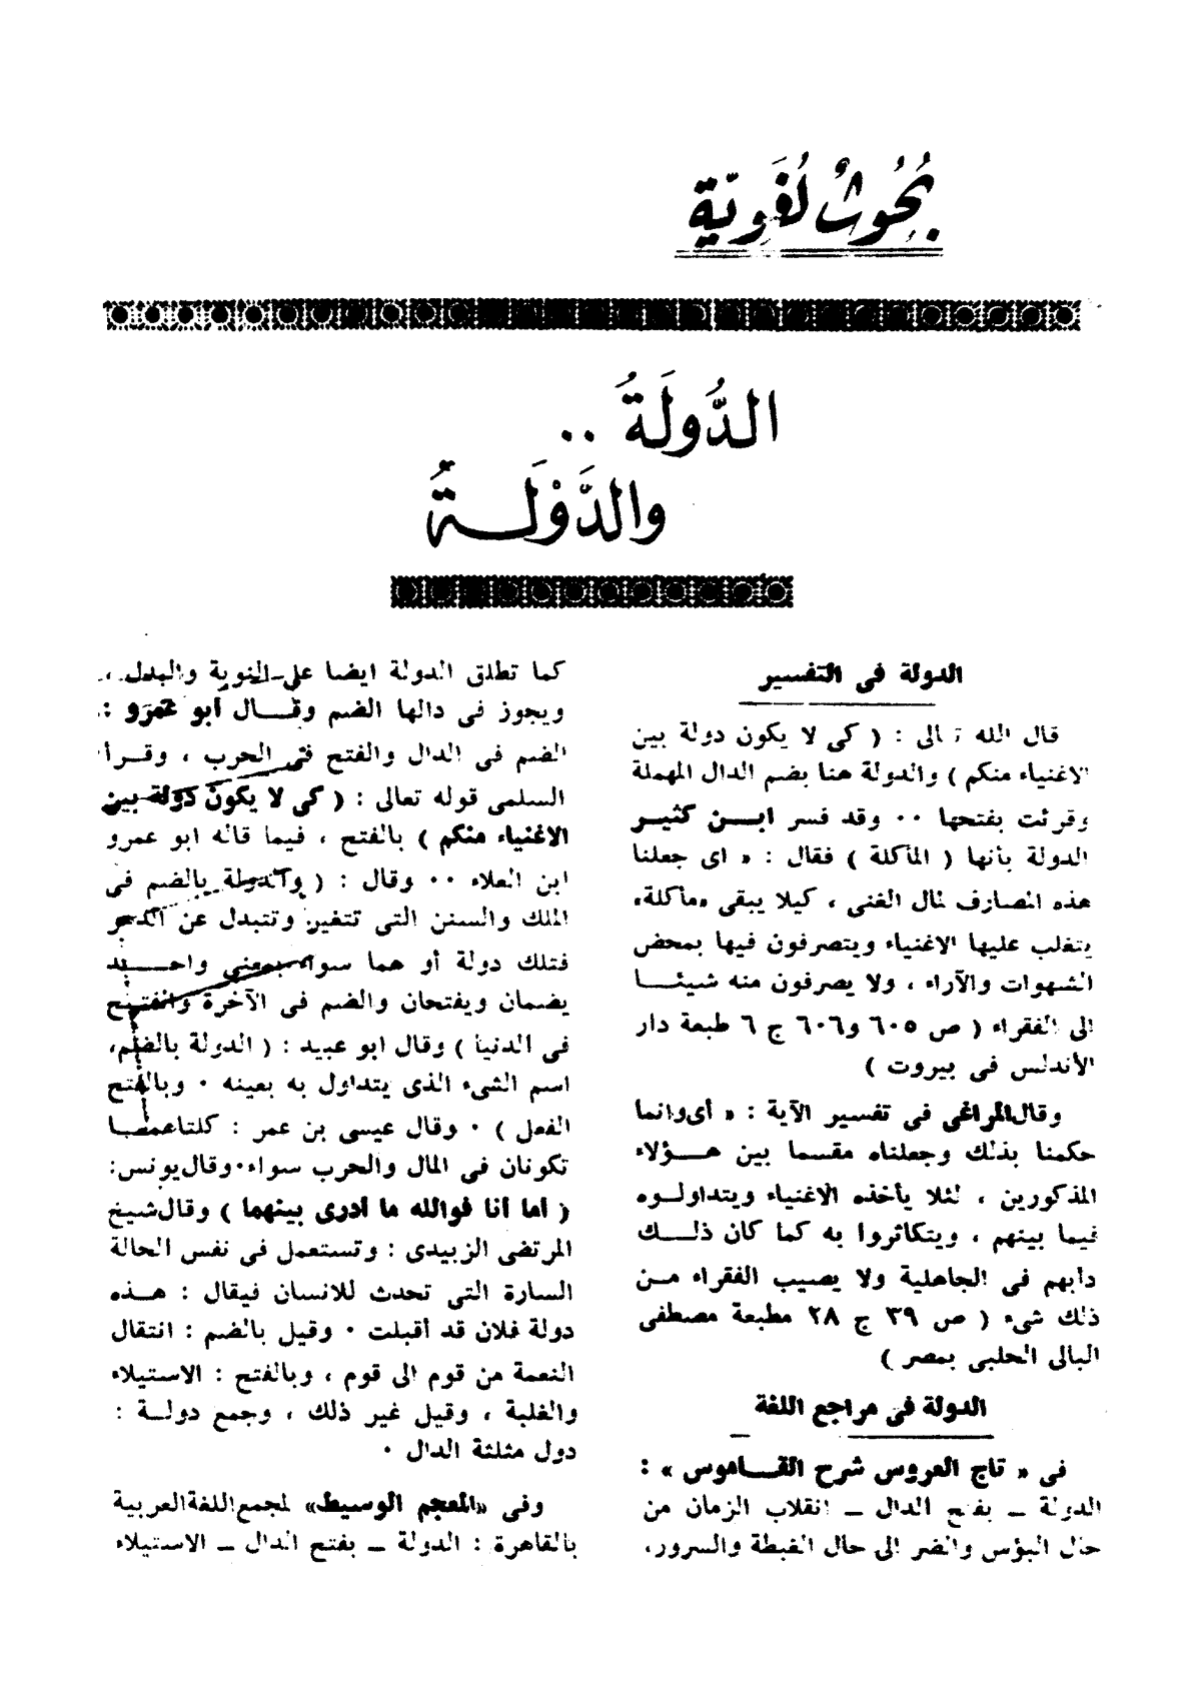 بُحُوثٌ لُغَوِيَّة
الدُّولَةُ ..
والدَّوْلَةُ
الدولة فى التفسير
قال الله تعالى : ( كى لا يكون دولة بين
الاغنياء منكم ) والدولة هنا بضم الدال المهملة
وقرئت بفتحها ٠٠ وقد فسر ابـــن كثيـر
الدولة بأنها ( المأكلة ) فقال : « اى جعلنا
هذه المصارف لمال الغنى ، كيلا يبقى «مأكلة»
يتغلب عليها الاغنياء ويتصرفون فيها بمحض
الشهوات والآراء ، ولا يصرفون منه شيئــا
الى الفقراء ( ص ٦٠٥ و٦٠٦ ج ٦ طبعة دار
الأندلس فى بيروت )
وقال المراغى فى تفسير الآية : « أى وانما
حكمنا بذلك وجعلناه مقسما بين هــؤلاء
المذكورين ، لئلا يأخذه الاغنياء ويتداولـوه
فيما بينهم ، ويتكاثروا به كما كان ذلــك
دابهم فى الجاهلية ولا يصيب الفقراء مـن
ذلك شىء ( ص ٣٩ ج ٢٨ مطبعة مصطفى
البالى الحلبى بمصر )
الدولة فى مراجع اللغة
فى « تاج العروس شرح القــاموس » :
الدولة ــ بفتح الدال ــ انقلاب الزمان من
حال البؤس والضر الى حال الغبطة والسرور،
كما تطلق الدولة ايضا على النوبة والبدل ،
ويجوز فى دالها الضم وقــال أبو عمرو :
الضم فى الدال والفتح فى الحرب ، وقـرأ
السلمى قوله تعالى : ( كى لا يكون دولة بين
الاغنياء منكم ) بالفتح ، فيما قاله ابو عمرو
ابن العلاء ٠٠ وقال : ( والدولة بالضم فى
الملك والسنن التى تتغير وتتبدل عن الدهر
فتلك دولة أو هما سواء بمعنى واحــد
يضمان ويفتحان والضم فى الآخرة والفتـح
فى الدنيا ) وقال ابو عبيد : ( الدولة بالضم،
اسم الشىء الذى يتداول به بعينه ٠ وبالفتح
الفعل ) ٠ وقال عيسى بن عمر : كلتاهمــا
تكونان فى المال والحرب سواء٠ وقال يونس:
( أما أنا فوالله ما أدرى بينهما ) وقال شيخ
المرتضى الزبيدى : وتستعمل فى نفس الحالة
السارة التى تحدث للانسان فيقال : هـذه
دولة فلان قد أقبلت ٠ وقيل بالضم : انتقال
النعمة من قوم الى قوم ، وبالفتح : الاستيلاء
والغلبة ، وقيل غير ذلك ، وجمع دولـة :
دول مثلثة الدال ٠
وفى «المعجم الوسيط» لمجمع اللغة العربية
بالقاهرة : الدولة ــ بفتح الدال ــ الاستيلاء